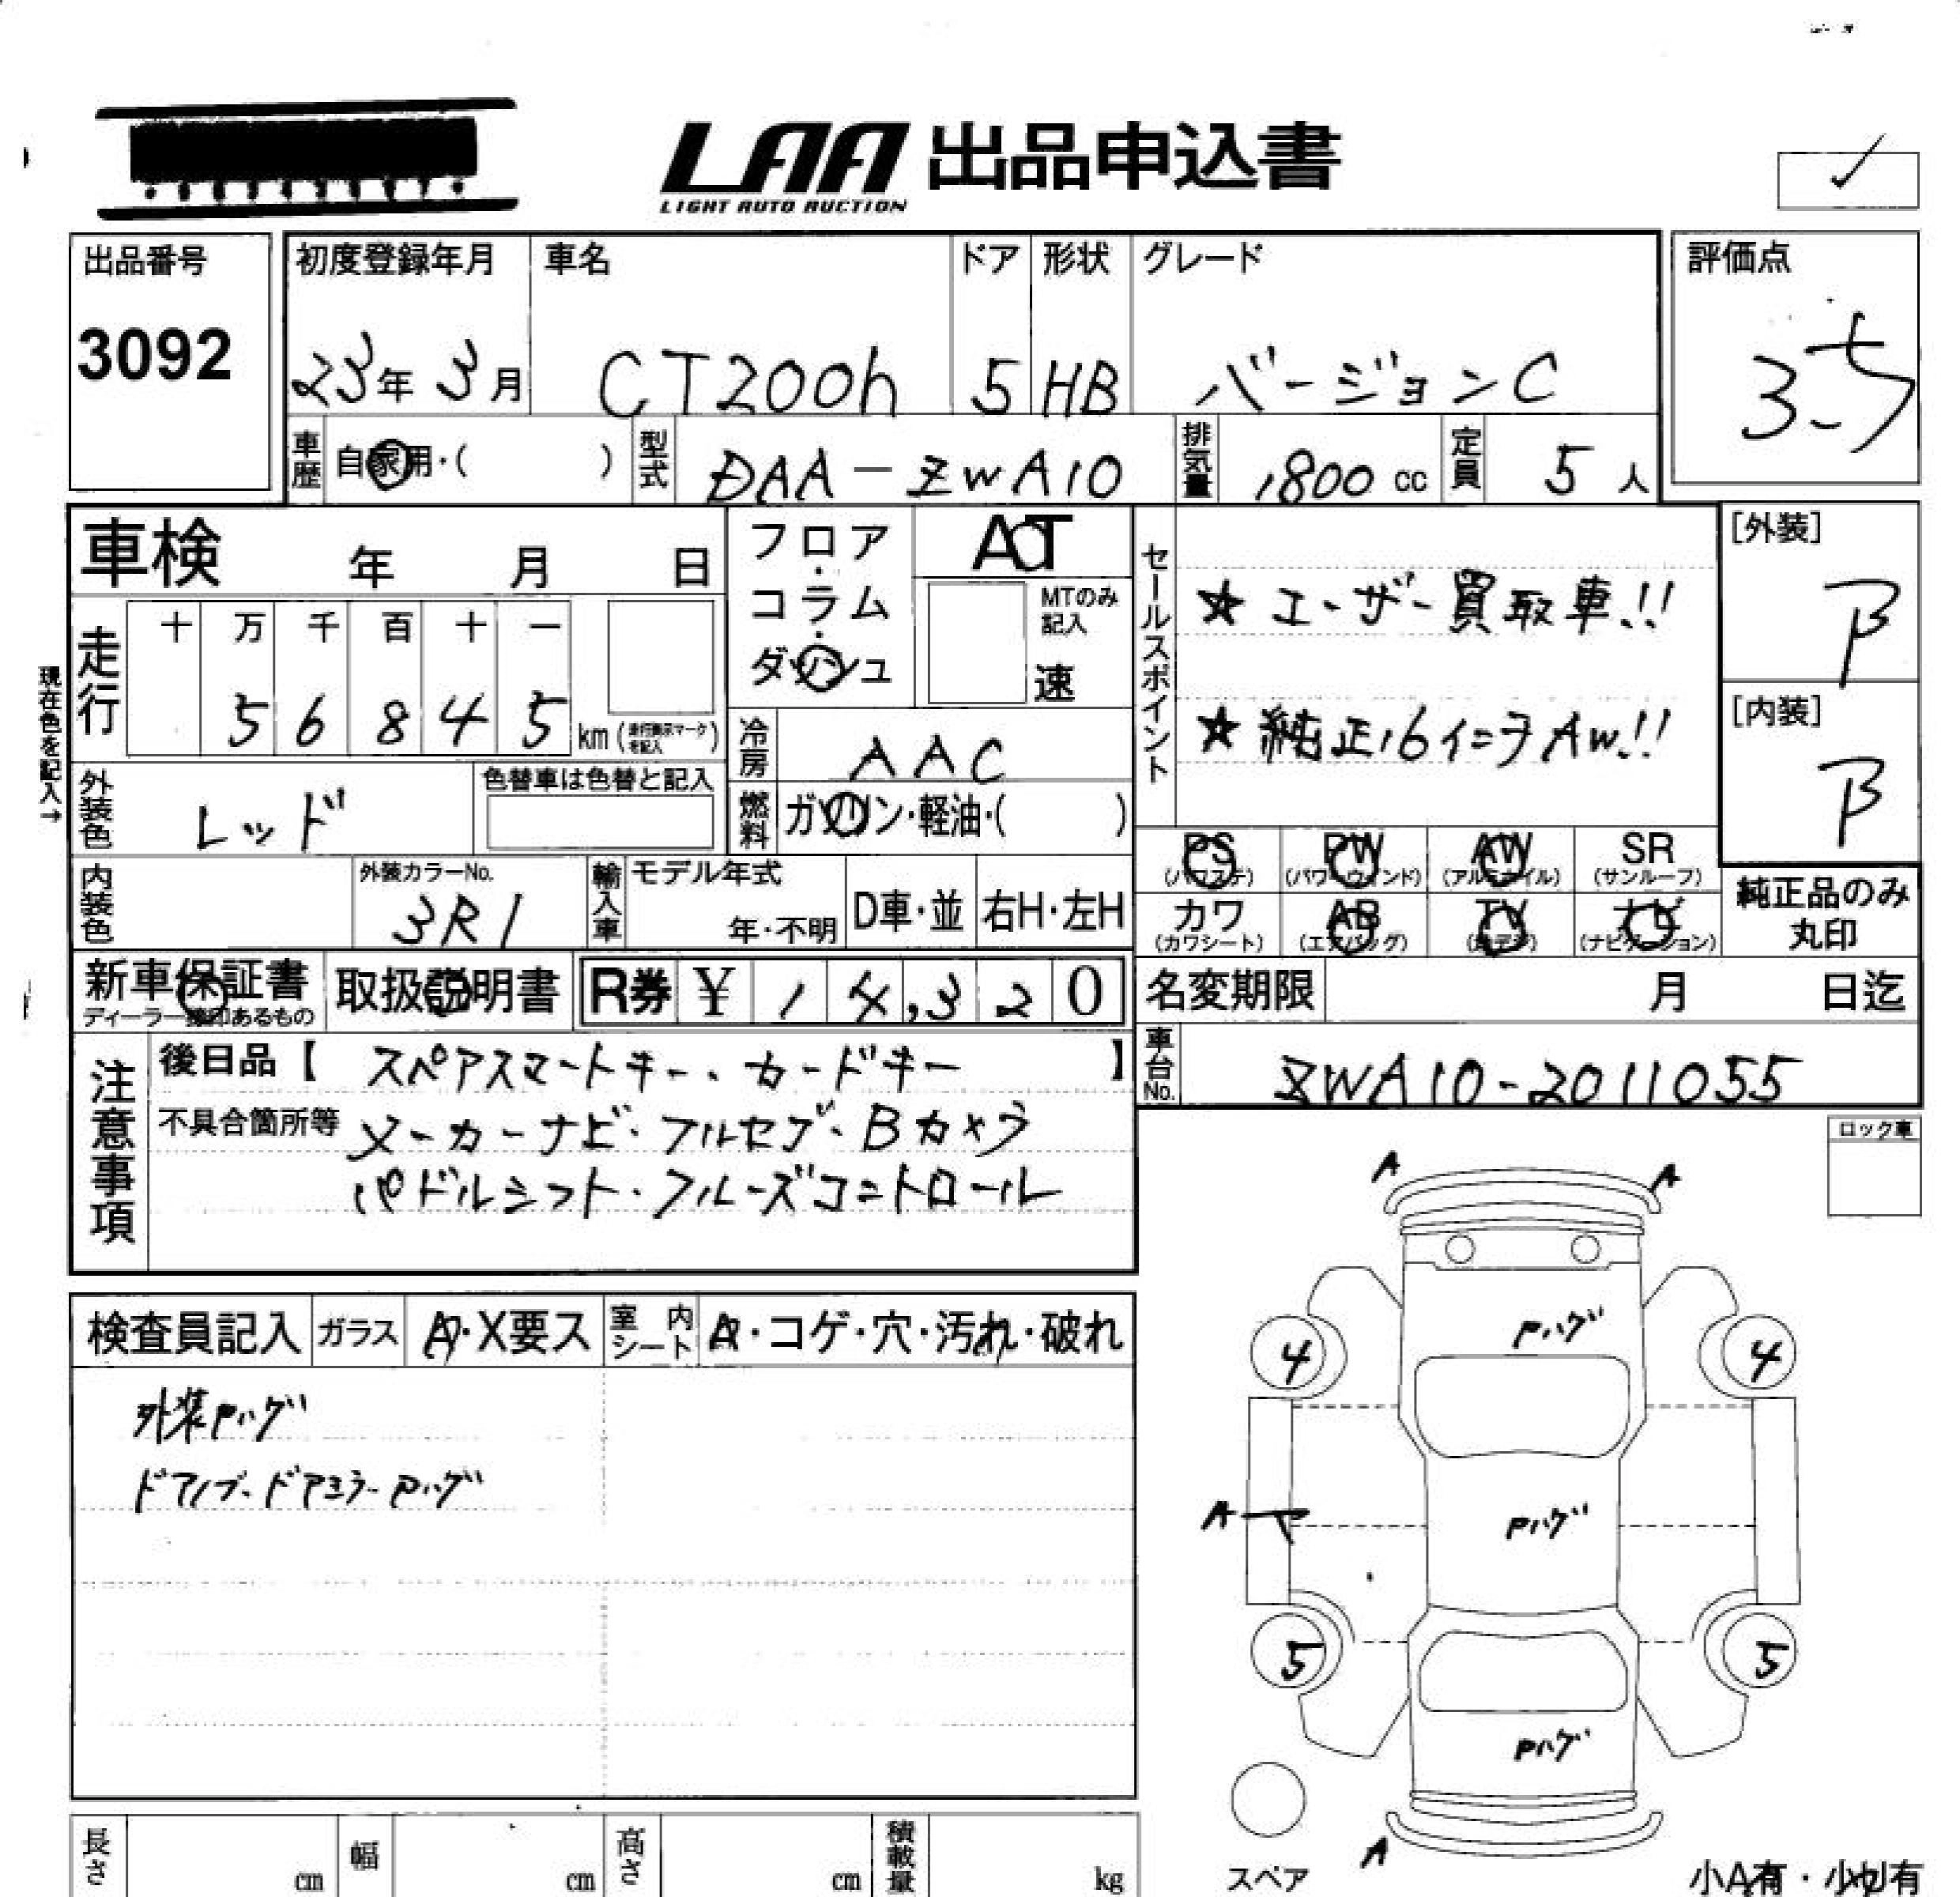 LAA 出品申込書
LIGHT AUTO AUCTION
出品番号
3092
初度登録年月
23年 3月
車名
CT200h
ドア
5
形状
HB
グレード
バージョンC
評価点
3.5
車歴
自家用・( )
型式
DAA-ZWA10
排気量
1800 cc
定員
5 人
車検 年 月 日
フロア・コラム・ダッシュ
AT
MTのみ記入
速
セールスポイント
★ユーザー買取車!!
★純正16インチAW!!
[外装]
B
[内装]
B
現在色を記入→
走行
十 万 千 百 十 一
5 6 8 4 5 km
冷房
AAC
外装色
レッド
色替車は色替と記入
燃料
ガソリン・軽油・( )
PS (パワステ)
PW (パワーウィンド)
AW (アルミホイル)
SR (サンルーフ)
カワ (カワシート)
AB (エアバッグ)
TV (地デジ)
ナビ (ナビゲーション)
純正品のみ
丸印
内装色
外装カラーNo.
3R1
輸入車
モデル年式
年・不明
D車・並
右H・左H
新車保証書
ディーラー捺印あるもの
取扱説明書
R券 ¥ 1 4,3 2 0
名変期限 月 日迄
車台No.
ZWA10-2011055
注意事項
後日品【 スペアスマートキー、カードキー 】
不具合箇所等 メーカーナビ・フルセグ・Bカメラ
パドルシフト・クルーズコントロール
ロック車
検査員記入
ガラス
A・X要ス
室内シート
・コゲ・穴・汚れ・破れ
外装Pハゲ
ドアノブ・ドアミラーPハゲ
A A
Pハゲ
4 4
A
Pハゲ
5 5
Pハゲ
A
スペア
小A有・小U有
長さ cm
幅 cm
高さ cm
積載量 kg